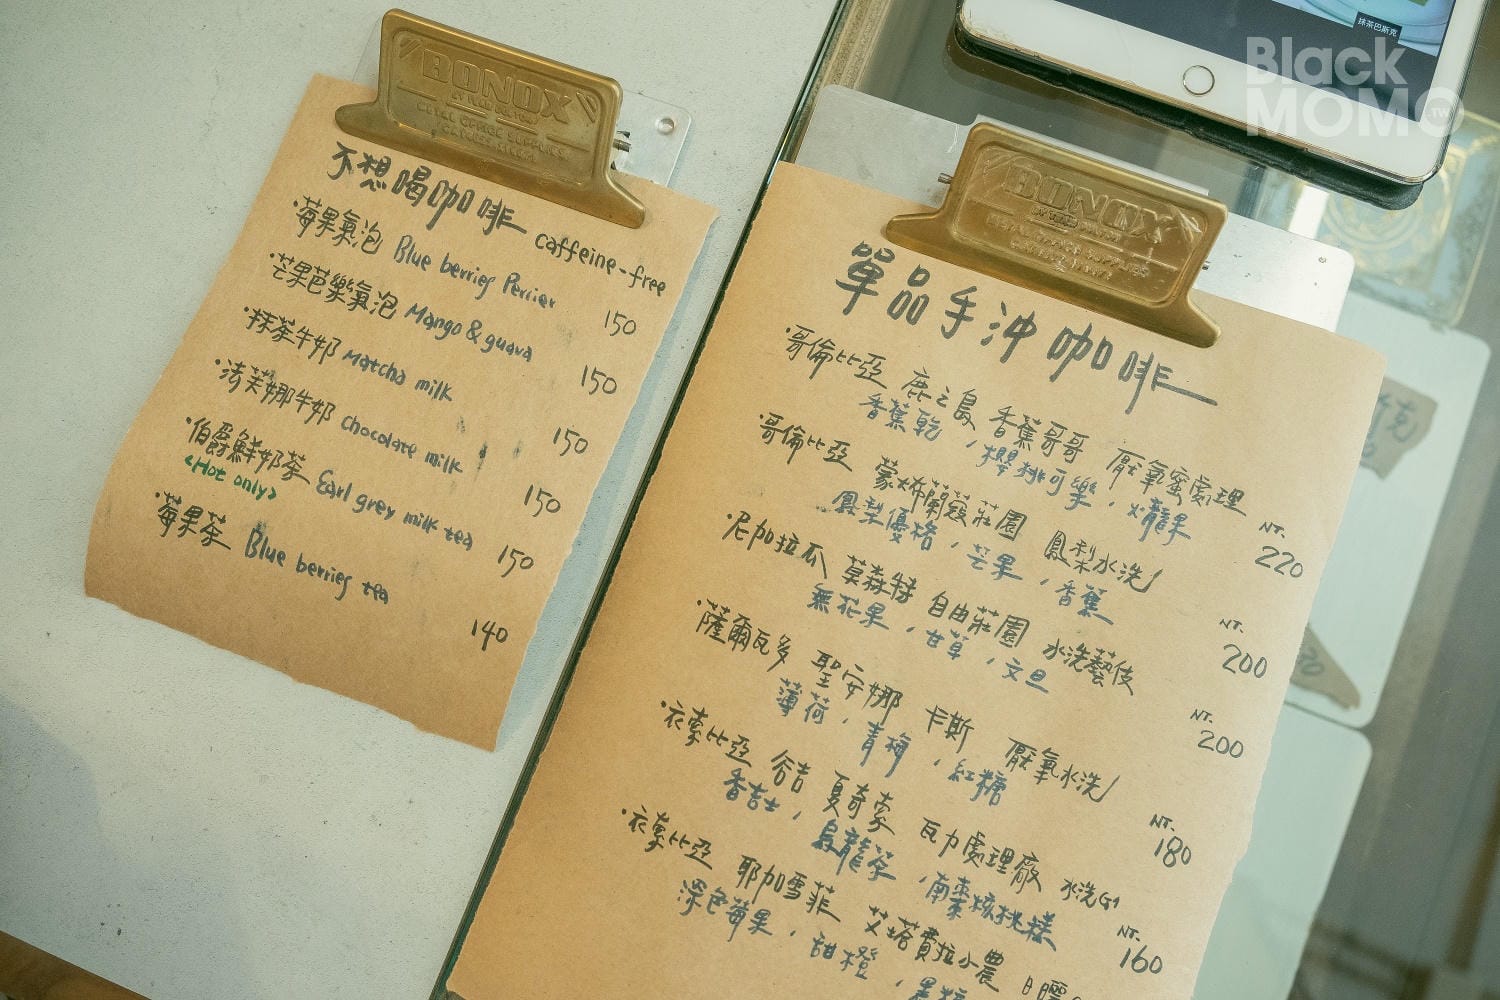 BONOX
METAL OFFICE SUPPLIES
不想喝咖啡 caffeine-free
·莓果氣泡 Blue berries Perrier 150
·芒果芭樂氣泡 Mango & guava 150
·抹茶牛奶 Matcha milk 150
·法芙娜牛奶 Chocolate milk 150
·伯爵鮮奶茶 Earl grey milk tea 150
<Hot only>
·莓果茶 Blue berries tea 140
BONOX
METAL OFFICE SUPPLIES
單品手沖咖啡
·哥倫比亞 鹿之島 香蕉哥哥 厭氧蜜處理 NT. 220
香蕉乾，櫻桃可樂，火龍果
·哥倫比亞 蒙娜蘭蔻莊園 鳳梨水洗 NT. 200
鳳梨優格，芒果，香蕉
·尼加拉瓜 莫森特 自由莊園 水洗藝伎 NT. 200
無花果，甘草，文旦
·薩爾瓦多 聖安娜 卡斯 厭氧水洗 NT. 180
薄荷，青梅，紅糖
·衣索比亞 谷吉 夏奇索 瓦力處理廠 水洗G1 NT. 160
香吉士，烏龍茶，南棗核桃糕
·衣索比亞 耶加雪菲 艾塔費拉小農 日曬
深色莓果，甜橙，黑糖
抹茶巴斯克
Black
MOMO.TW